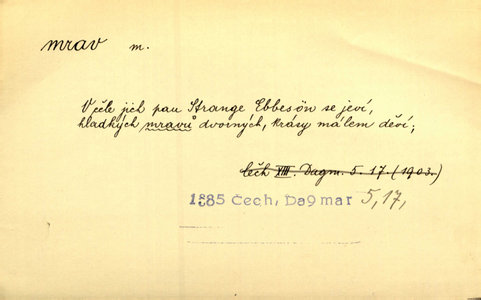 mrav m.
V čele jich pan Strange Ebbesön se jeví,
hladkých mravů dvorných, krásy málem děví;
Čech XIII. Dagm. 5. 17. (1903.)
1885 Čech, Da9mar 5,17,